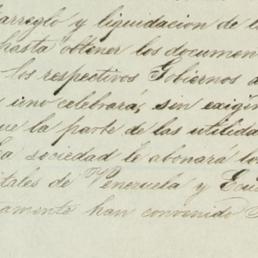 arreglo y liquidacion de l
hasta obtener los documen
los respectivos Gobiernos a
uno celebrará, sin exigir
que la parte de las utilida
la sociedad le abonará lo
tales de Venezuela y Ecu
amente han convenido